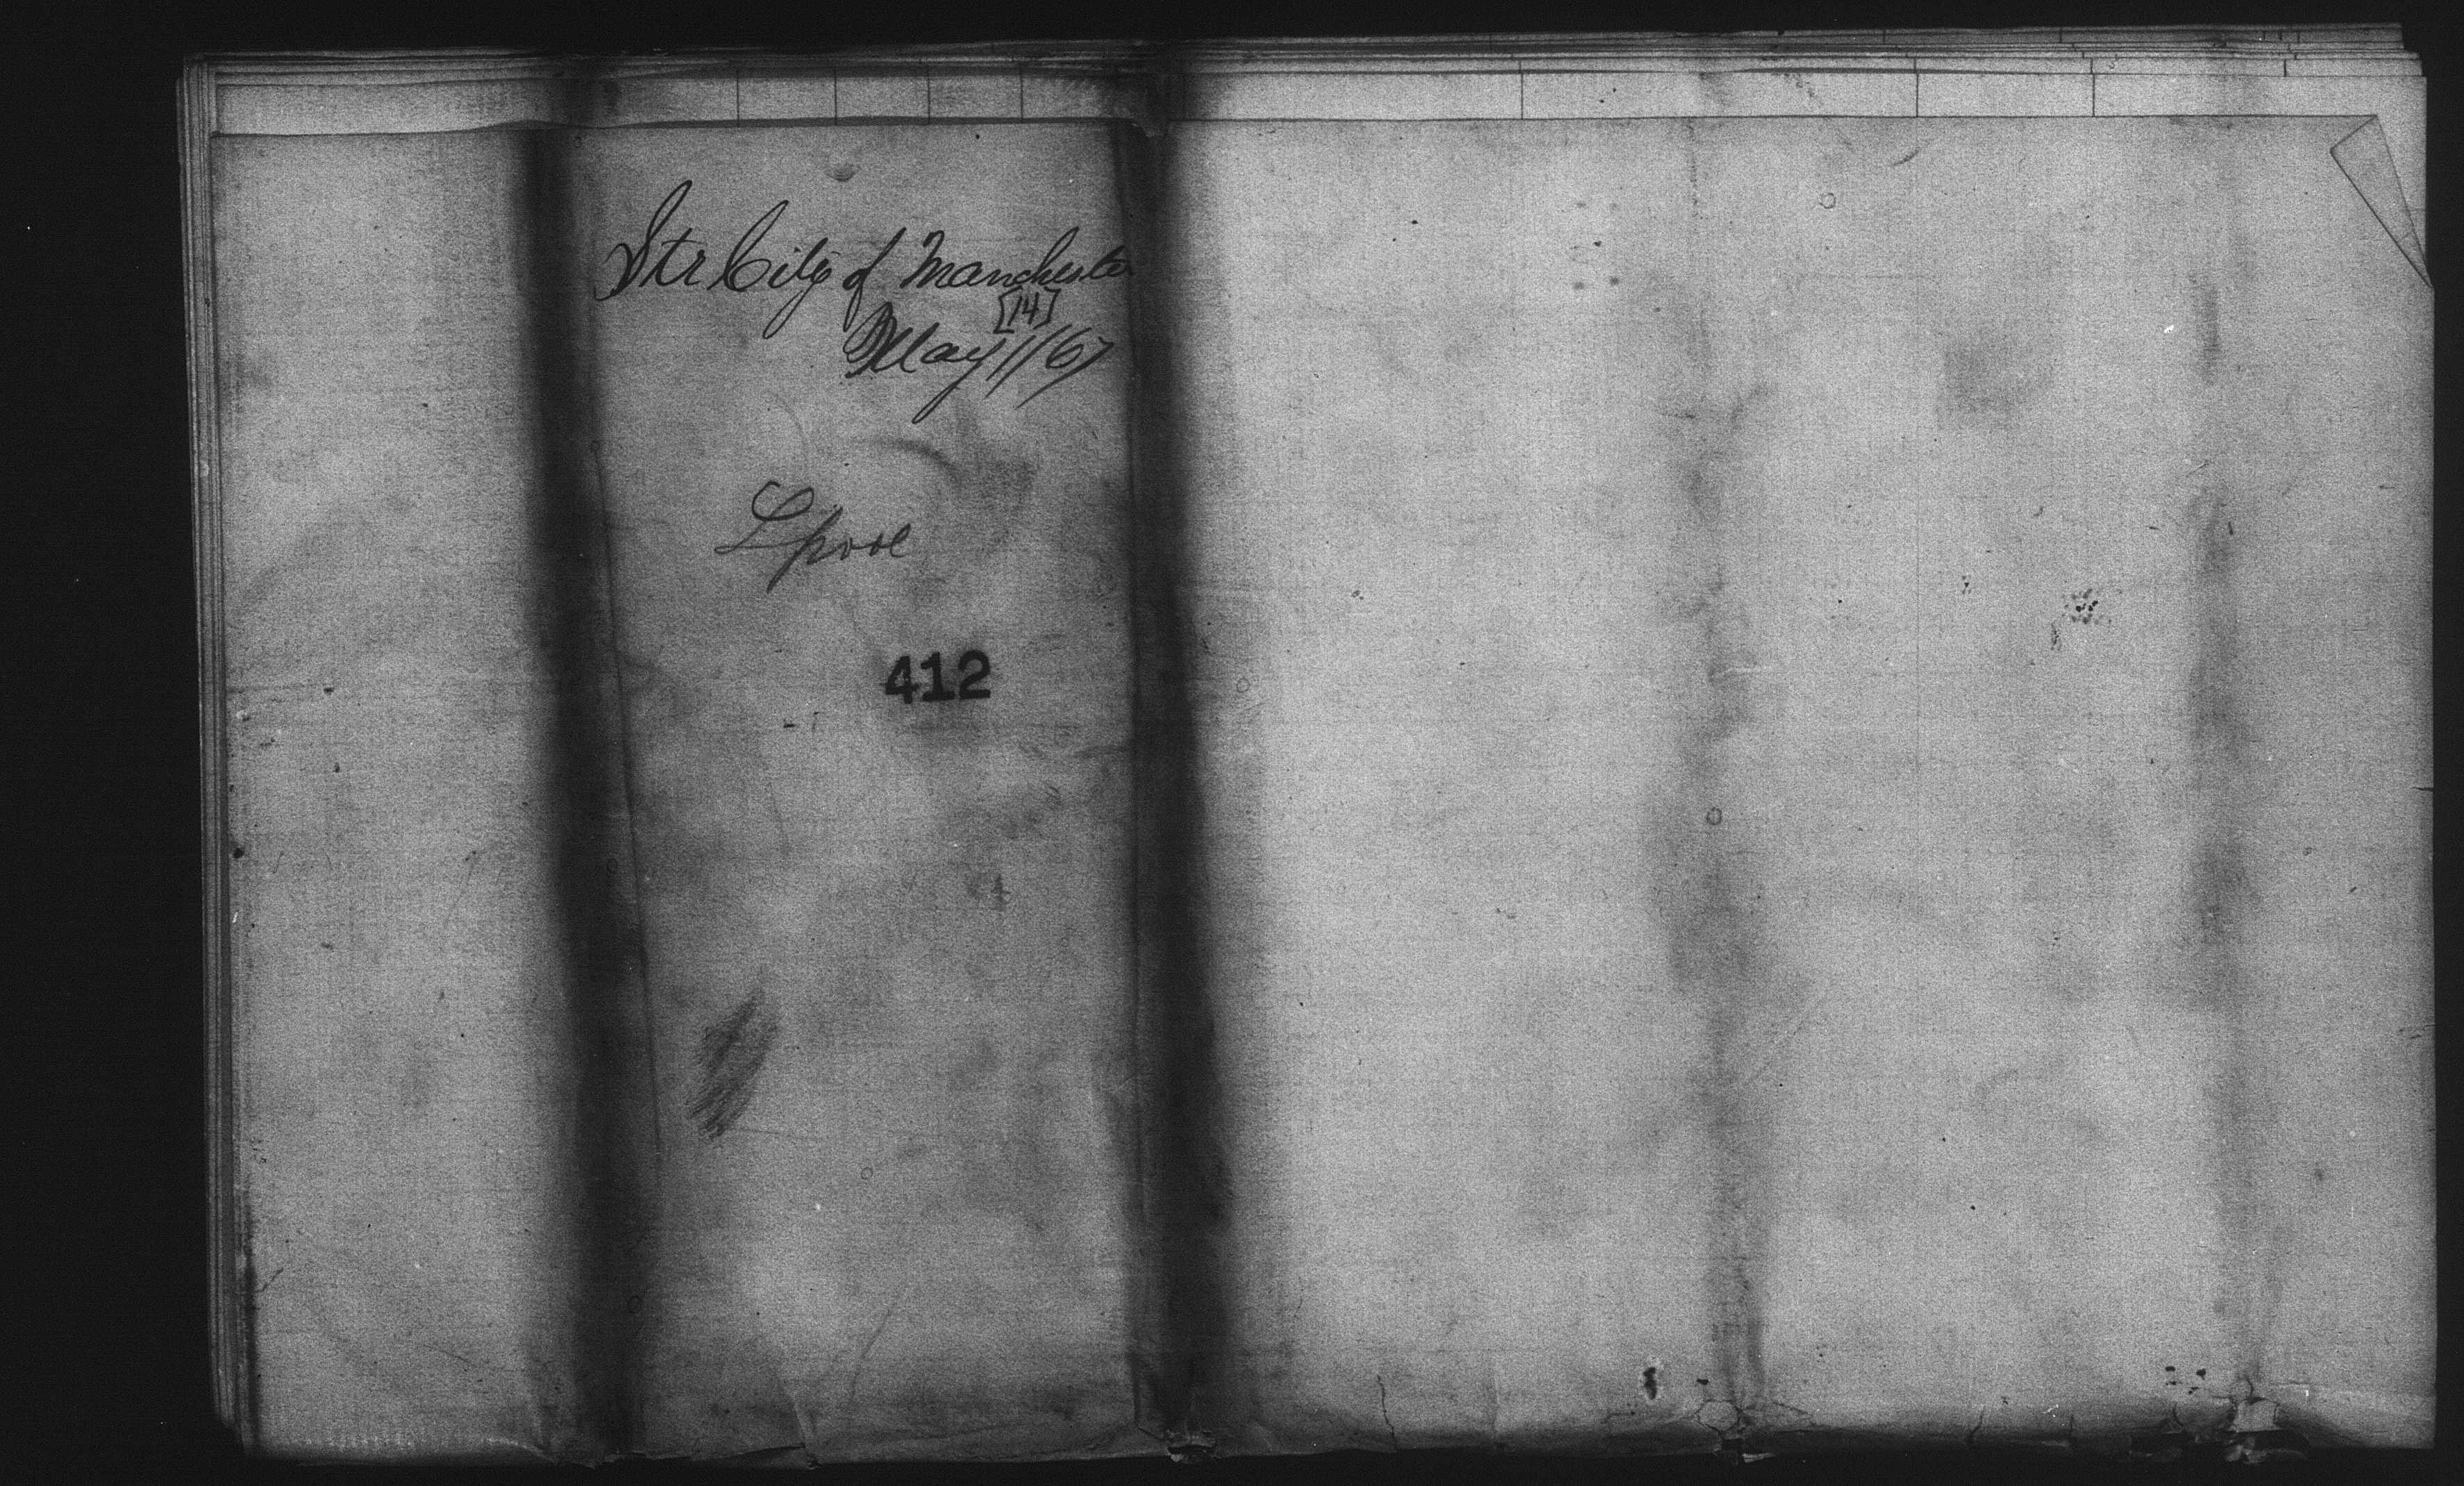 Str City of Manchester
[14]
May 11/67
Lpool
412